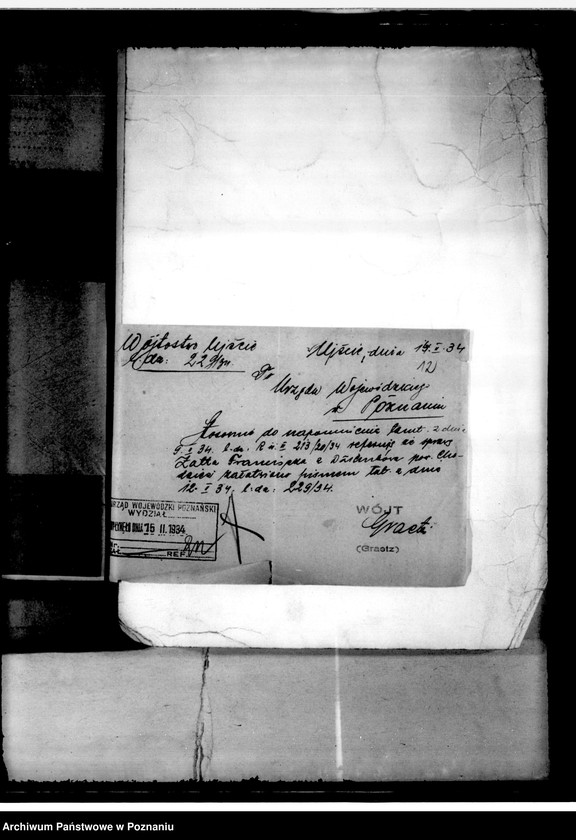 Wójtostwo Ujście
L. dz: 229/34.
Ujście, dnia 14.II.34
12)
Do
Urzędu Wojewódzkiego
w Poznaniu
Stosownie do napomnienia tamt. z dnia
9.II.34. l.dz. R.II. 213/20/34 referuję że sprawę
Franciszka z pow. Cho-
dzież załatwiono pismem tut. z dnia
12.II.34. l.dz: 229/34.
URZĄD WOJEWÓDZKI POZNAŃSKI
WYDZIAŁ
DNIA 15 II. 1934
REF.
WÓJT
Graetz
(Graetz)
Archiwum Państwowe w Poznaniu